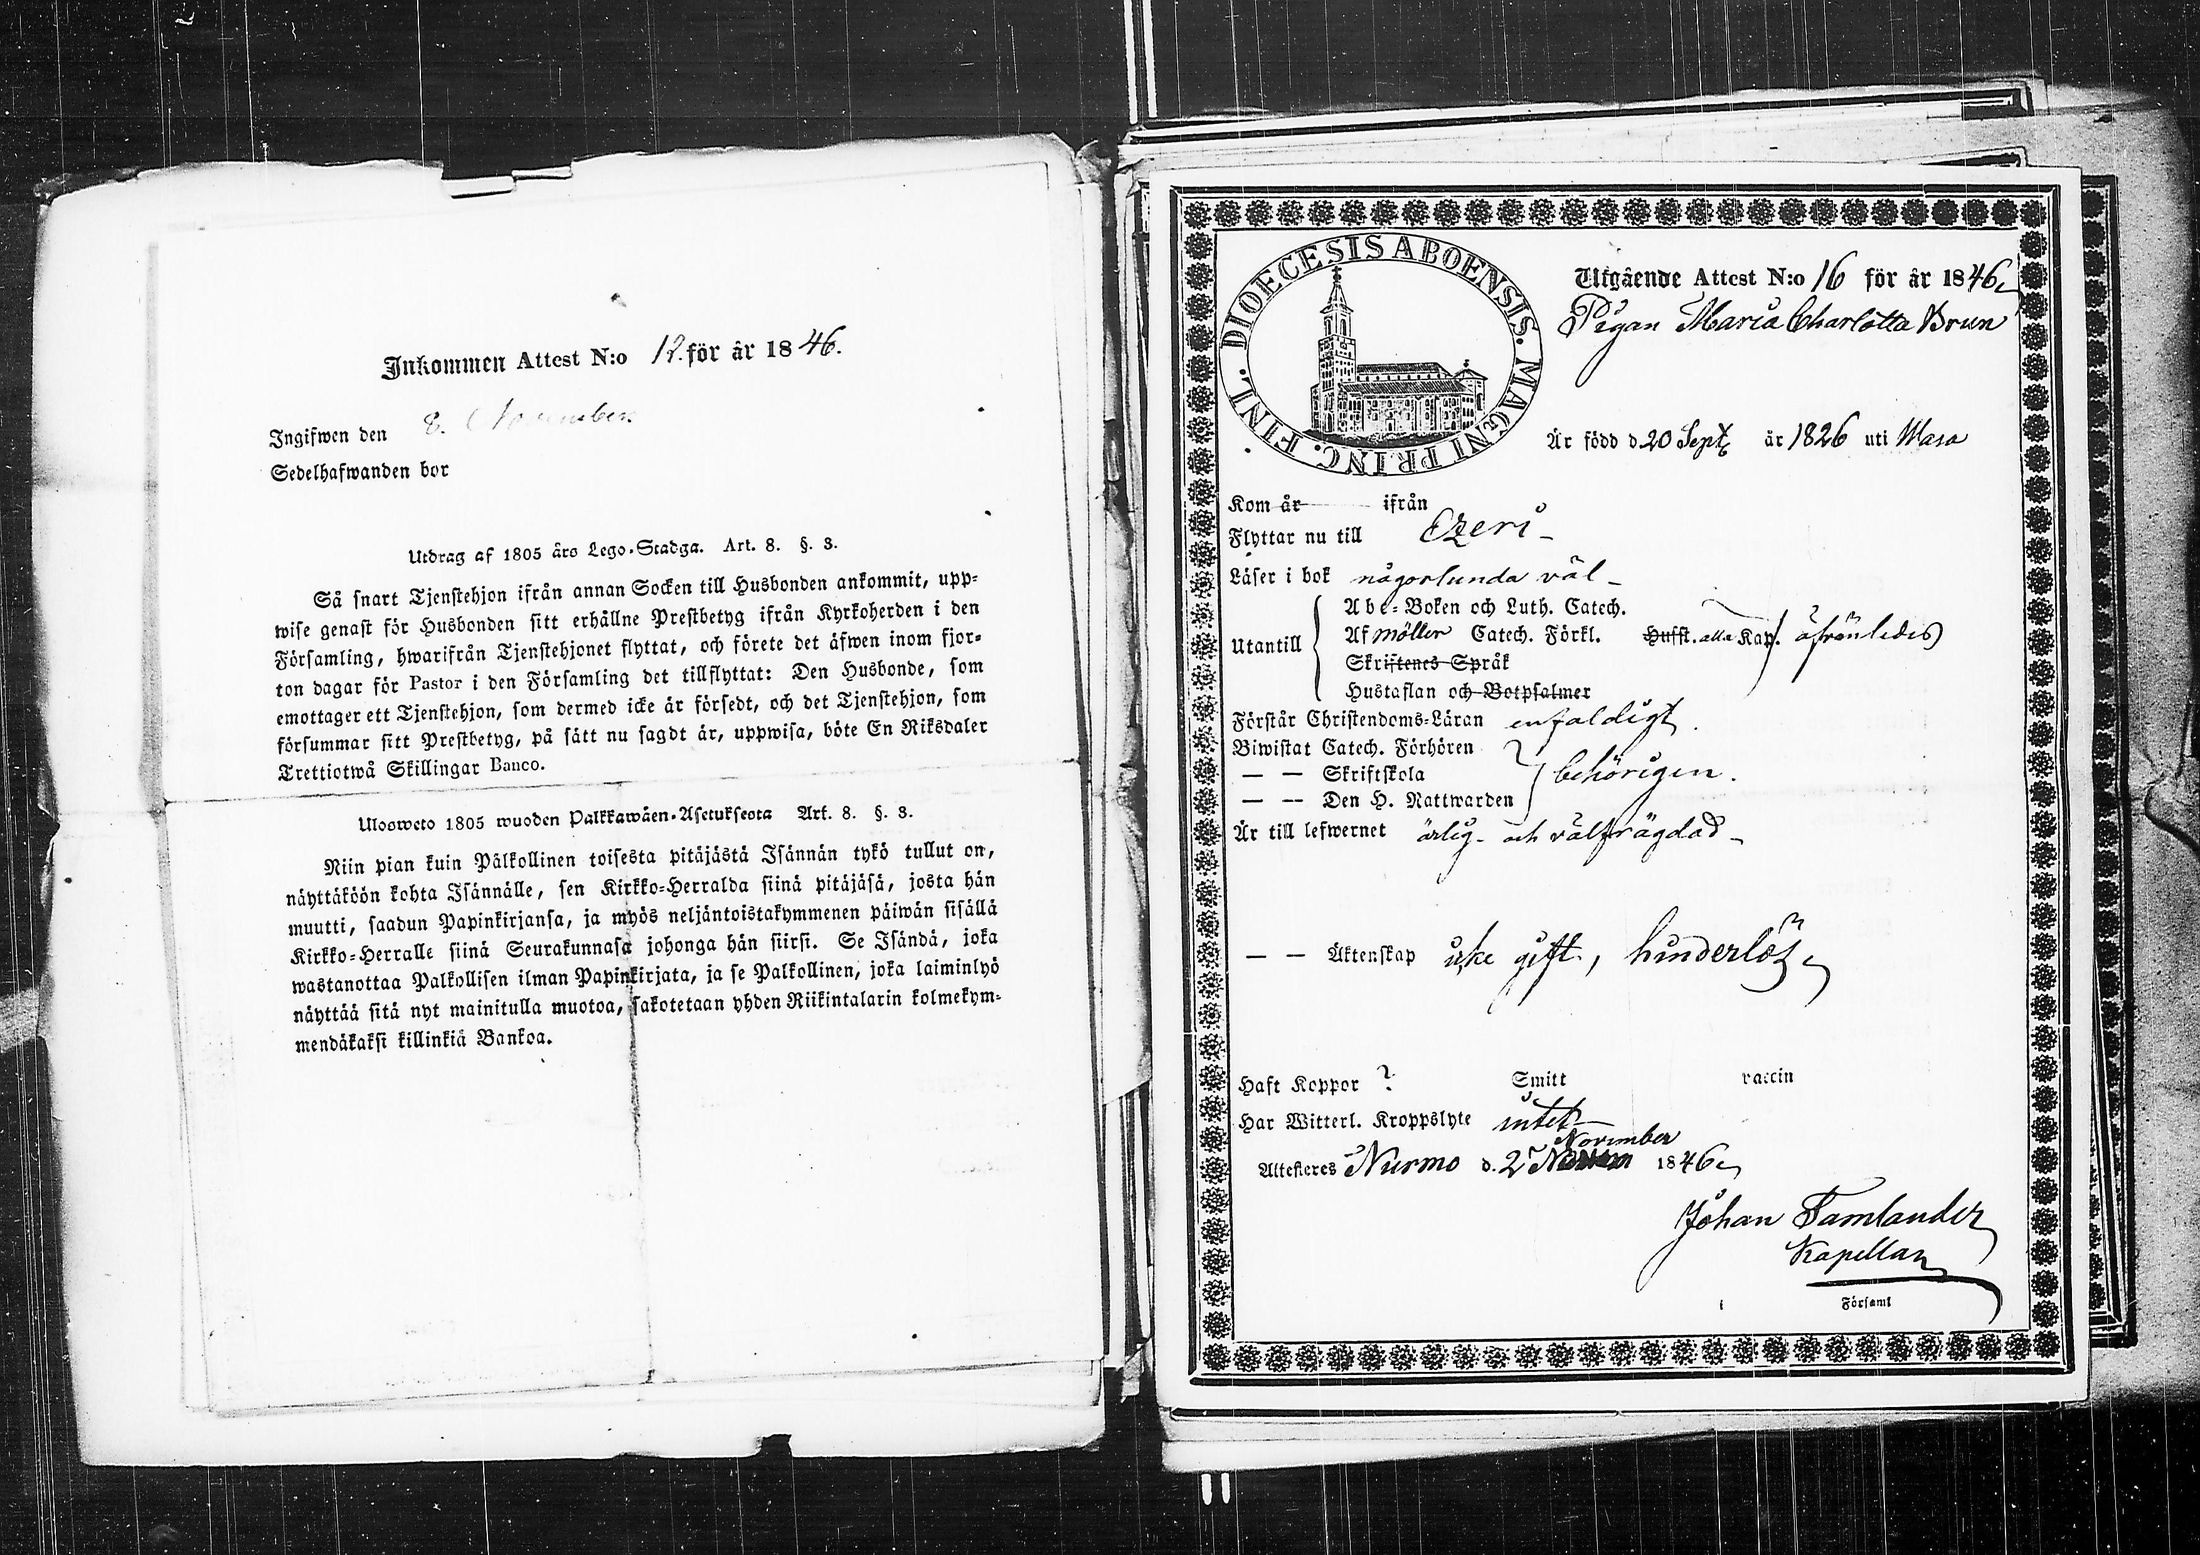 Inkommen Attest N:o 12. för år 1846.
Ingifwen den 8. November
Sedelhafwanden bor
Utdrag af 1805 års Lego-Stadga. Art. 8. §. 3.
Så snart Tjenstehjon ifrån annan Socken till Husbonden ankommit, upp-
wise genast för Husbonden sitt erhållne Prestbetyg ifrån Kyrkoherden i den
Församling, hwarifrån Tjenstehjonet flyttat, och förete det äfwen inom fjor-
ton dagar för Pastor i den Församling det tillflyttat: Den Husbonde, som
emottager ett Tjenstehjon, som dermed icke är försedt, och det Tjenstehjon, som
försummar sitt Prestbetyg, på sätt nu sagdt är, uppwisa, böte En Riksdaler
Trettiotwå Skillingar Banco.
Ulosweto 1805 wuoden Palkkawäen-Asetuksesta Art. 8. §. 3.
Niin pian kuin Pälkollinen toisesta pitäjästä Isännän tykö tullut on,
näyttäköön kohta Isännälle, sen Kirkko-Herralda siinä pitäjäsä, josta hän
muutti, saadun Papinkirjansa, ja myös neljäntoistakymmenen päiwän sisällä
Kirkko-Herralle siinä Seurakunnasa johonga hän siirsi. Se Isändä, joka
wastanottaa Palkollisen ilman Papinkirjata, ja se Palkollinen, joka laiminlyö
näyttää sitä nyt mainitulla muotoa, sakotetaan yhden Riikintalarin kolmekym-
mendäkaksi killinkiä Bankoa.
DIOECESIS ABOENSIS. MAGNI PRINC. FINL.
Utgående Attest N:o 16 för år 1846
Pigan Maria Charlotta Brun
Är född d. 20 Sept. år 1826 uti Wasa
Kom år ifrån
Flyttar nu till Ezeri
Läser i bok någorlunda väl
Utantill
Abc-Boken och Luth. Catech.
Af Möller Catech. Förkl. Hufst. alla Kap. äfvenledes
Skriftenes Språk
Hustaflan och Botpsalmer
Förstår Christendoms-Läran enfaldigt.
Biwistat Catech. Förhören
— — Skriftskola behörigen.
— — Den H. Nattwarden
Är till lefwernet ärlig och välfrägdad
— — Äktenskap icke gift, hinderlös
Haft Koppor ? Smitt vaccin
Har Witterl. Kroppslyte intet
November
Attesteres Nurmo d. 2 1846
Johan Tamlander
Kapellan
i Församl